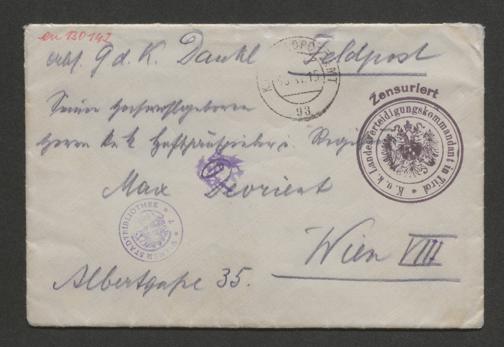 en 130142
Abs. G d. K. Dankl Feldpost
93
Zensuriert
K. u. k. Landesverteidigungskommandant in Tirol
Seiner Hochwohlgeboren
Herrn k. k. Hofschauspieler u.
Max Devrient
WIENER STADTBIBLIOTHEK
Wien VIII
Albertgasse 35.